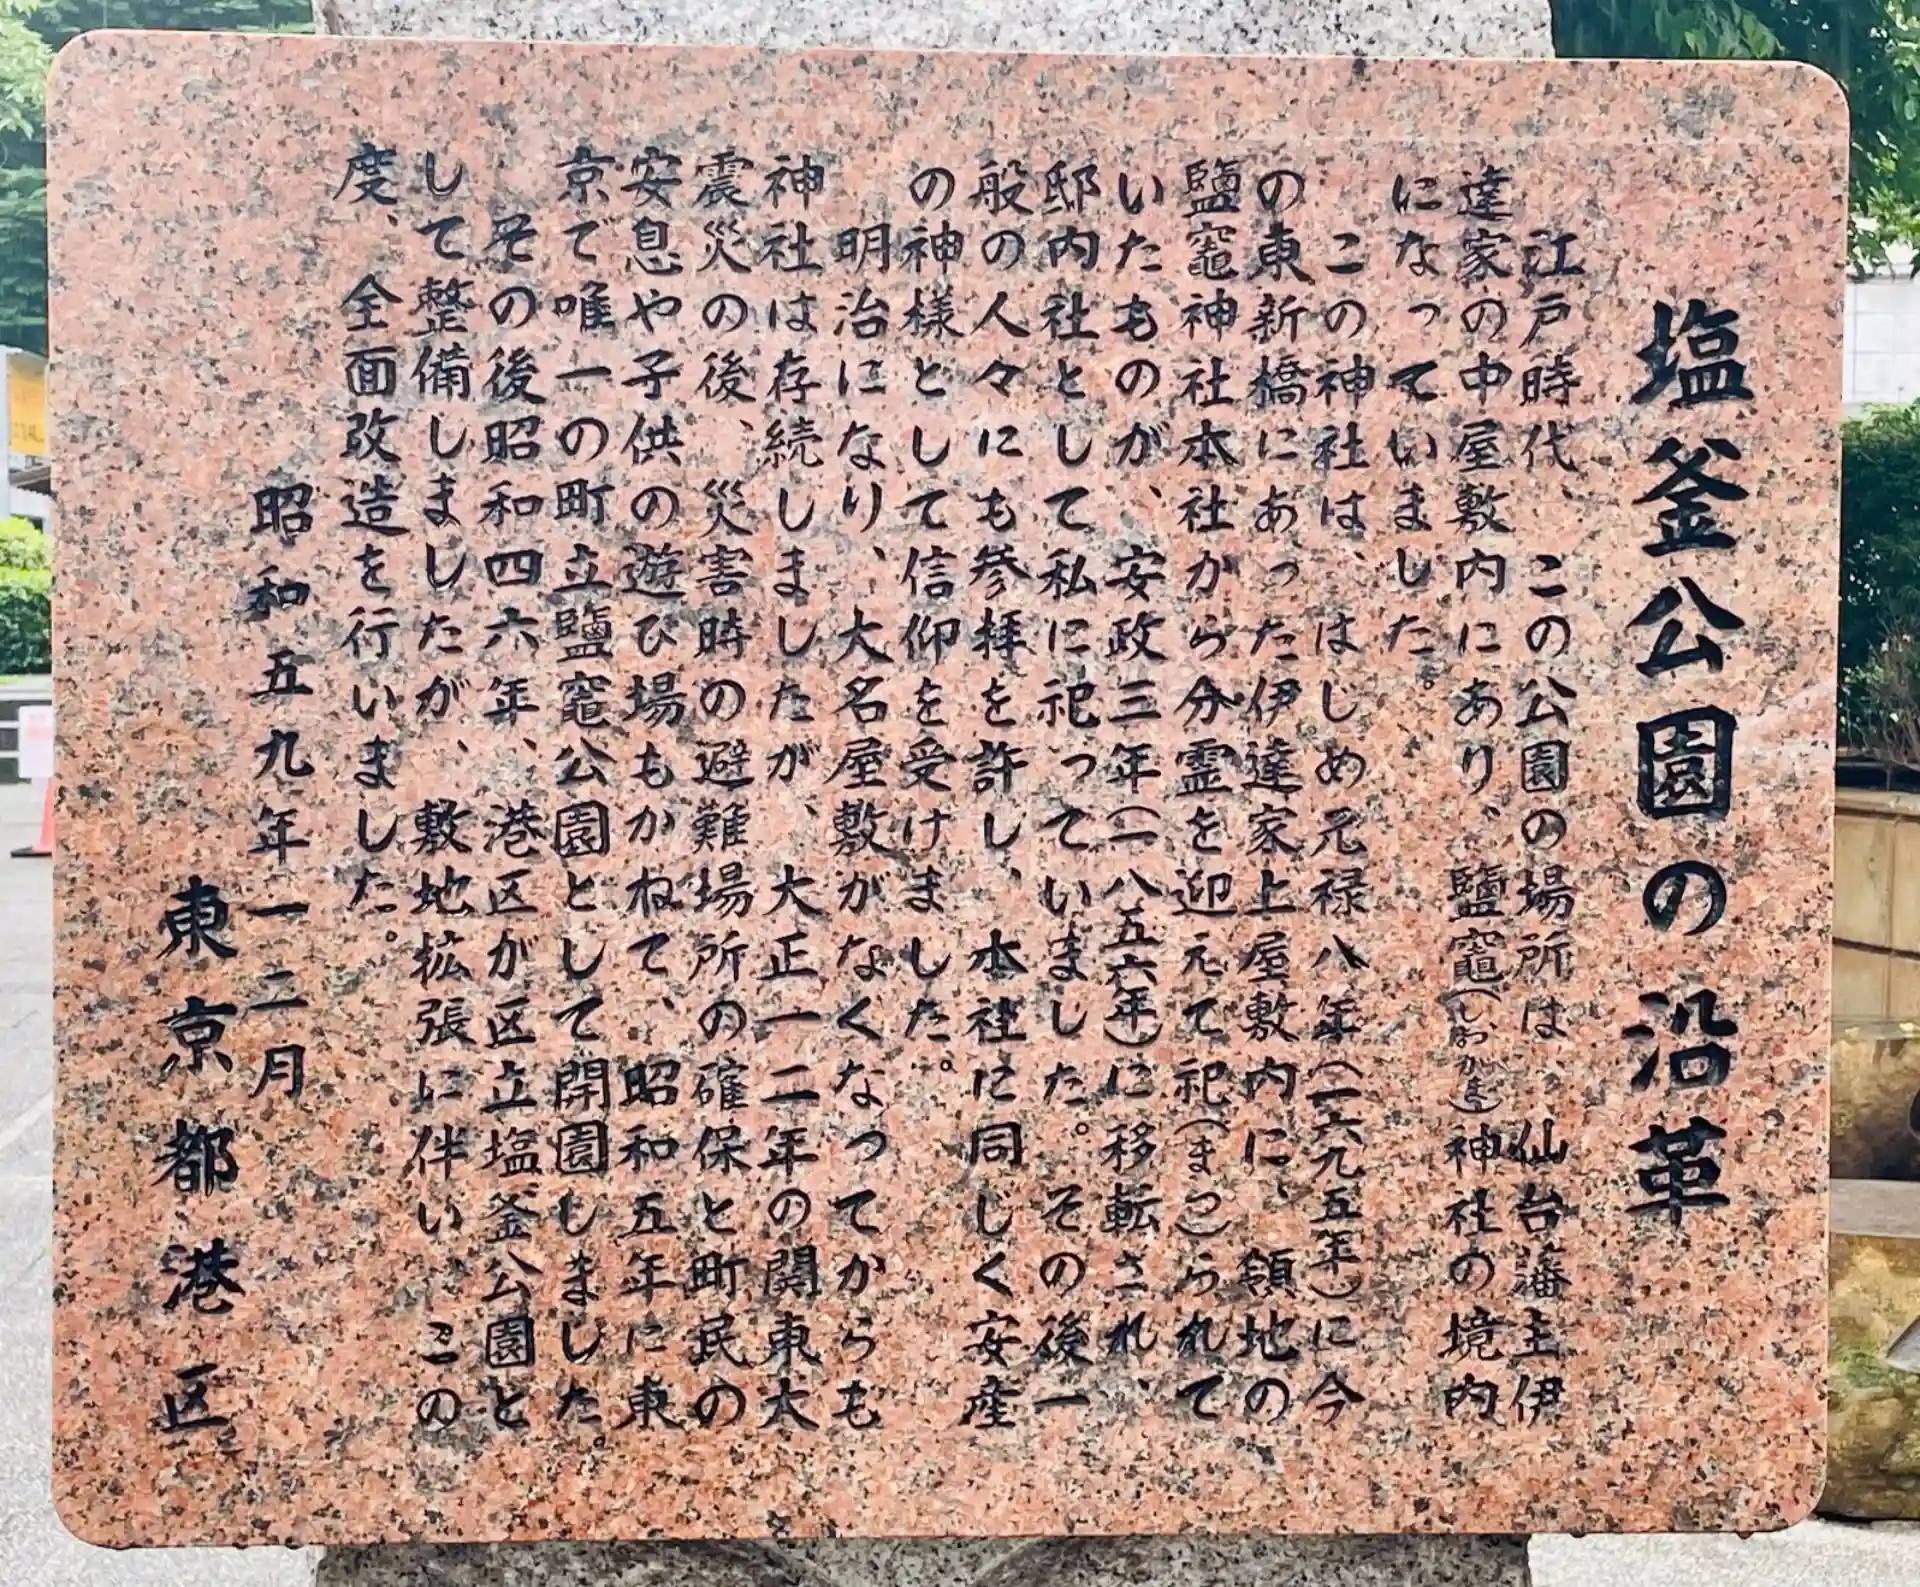 塩釜公園の沿革
江戸時代、この公園の場所は、仙台藩主伊
達家の中屋敷内にあり、鹽竈(しおがま)神社の境内
になっていました。
この神社は、はじめ元禄八年(一六九五年)に今
の東新橋にあった伊達家上屋敷内に、領地の
鹽竈神社本社から分霊を迎えて祀(まつ)られて
いたものが、安政三年(一八五六年)に移転され、
邸内社として私に祀っていました。その後一
般の人々にも参拝を許し、本社に同じく安産
の神様として信仰を受けました。
明治になり、大名屋敷がなくなってからも
神社は存続しましたが、大正一二年の関東大
震災の後、災害時の避難場所の確保と町民の
安息や子供の遊び場もかねて、昭和五年に東
京で唯一の町立鹽竈公園として開園しました。
その後昭和四六年、港区が区立塩釜公園と
して整備しましたが、敷地拡張に伴い、この
度、全面改造を行いました。
昭和五九年一二月
東京都港区